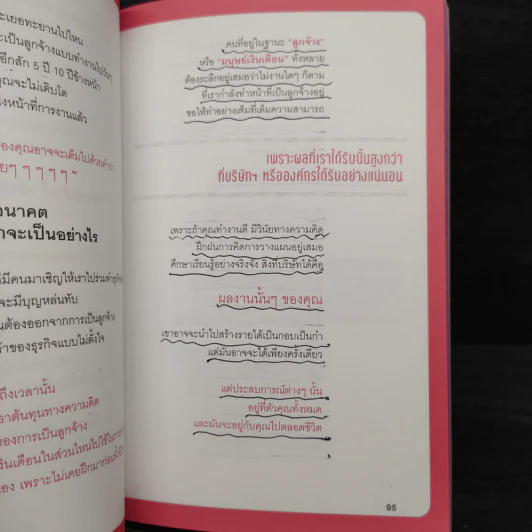 ะเยอทะยานไปไหน
ะเป็นลูกจ้างแบบทำงานไปวันๆ
อีกสัก 5 ปี 10 ปีข้างหน้า
คุณจะไม่เติบโต
หน้าที่การงานแล้ว
องคุณอาจจะเต็มไปด้วยคำว่า
ยๆ ๆ ๆ ๆ ๆ"
อนาคต
าจะเป็นอย่างไร
มีคนมาเชิญให้เราไปร่วม
จะมีบุญหล่นทับ
นต้องออกจากการเป็นลูกจ้าง
าของธุรกิจแบบไม่ตั้งใจ
ถึงเวลานั้น
าต้นทุนทางความคิด
ของการเป็นลูกจ้าง
งินเดือนในส่วนไหนไปใช้ใน
อง เพราะไม่เคยฝึกมาก่อน
คนที่อยู่ในฐานะ "ลูกจ้าง"
หรือ "มนุษย์เงินเดือน" ทั้งหลาย
ต้องระลึกอยู่เสมอว่าไม่งานใดๆ ก็ตาม
ที่เรากำลังทำหน้าที่เป็นลูกจ้างอยู่
ขอให้ทำอย่างเต็มที่เต็มความสามารถ
เพราะผลที่เราได้รับนั้นสูงกว่า
ที่บริษัทฯ หรือองค์กรได้รับอย่างแน่นอน
เพราะถ้าคุณทำงานดี มีวินัยทางความคิด
ฝึกฝนการคิดการวางแผนอยู่เสมอ
ศึกษาเรียนรู้อย่างจริงจัง สิ่งที่บริษัทได้คือ
ผลงานนั้นๆ ของคุณ
เขาอาจจะนำไปสร้างรายได้เป็นกอบเป็นกำ
แต่มันอาจจะได้เพียงครั้งเดียว
แต่ประสบการณ์ต่างๆ นั้น
อยู่ที่ตัวคุณทั้งหมด
และมันจะอยู่กับคุณไปตลอดชีวิต
95